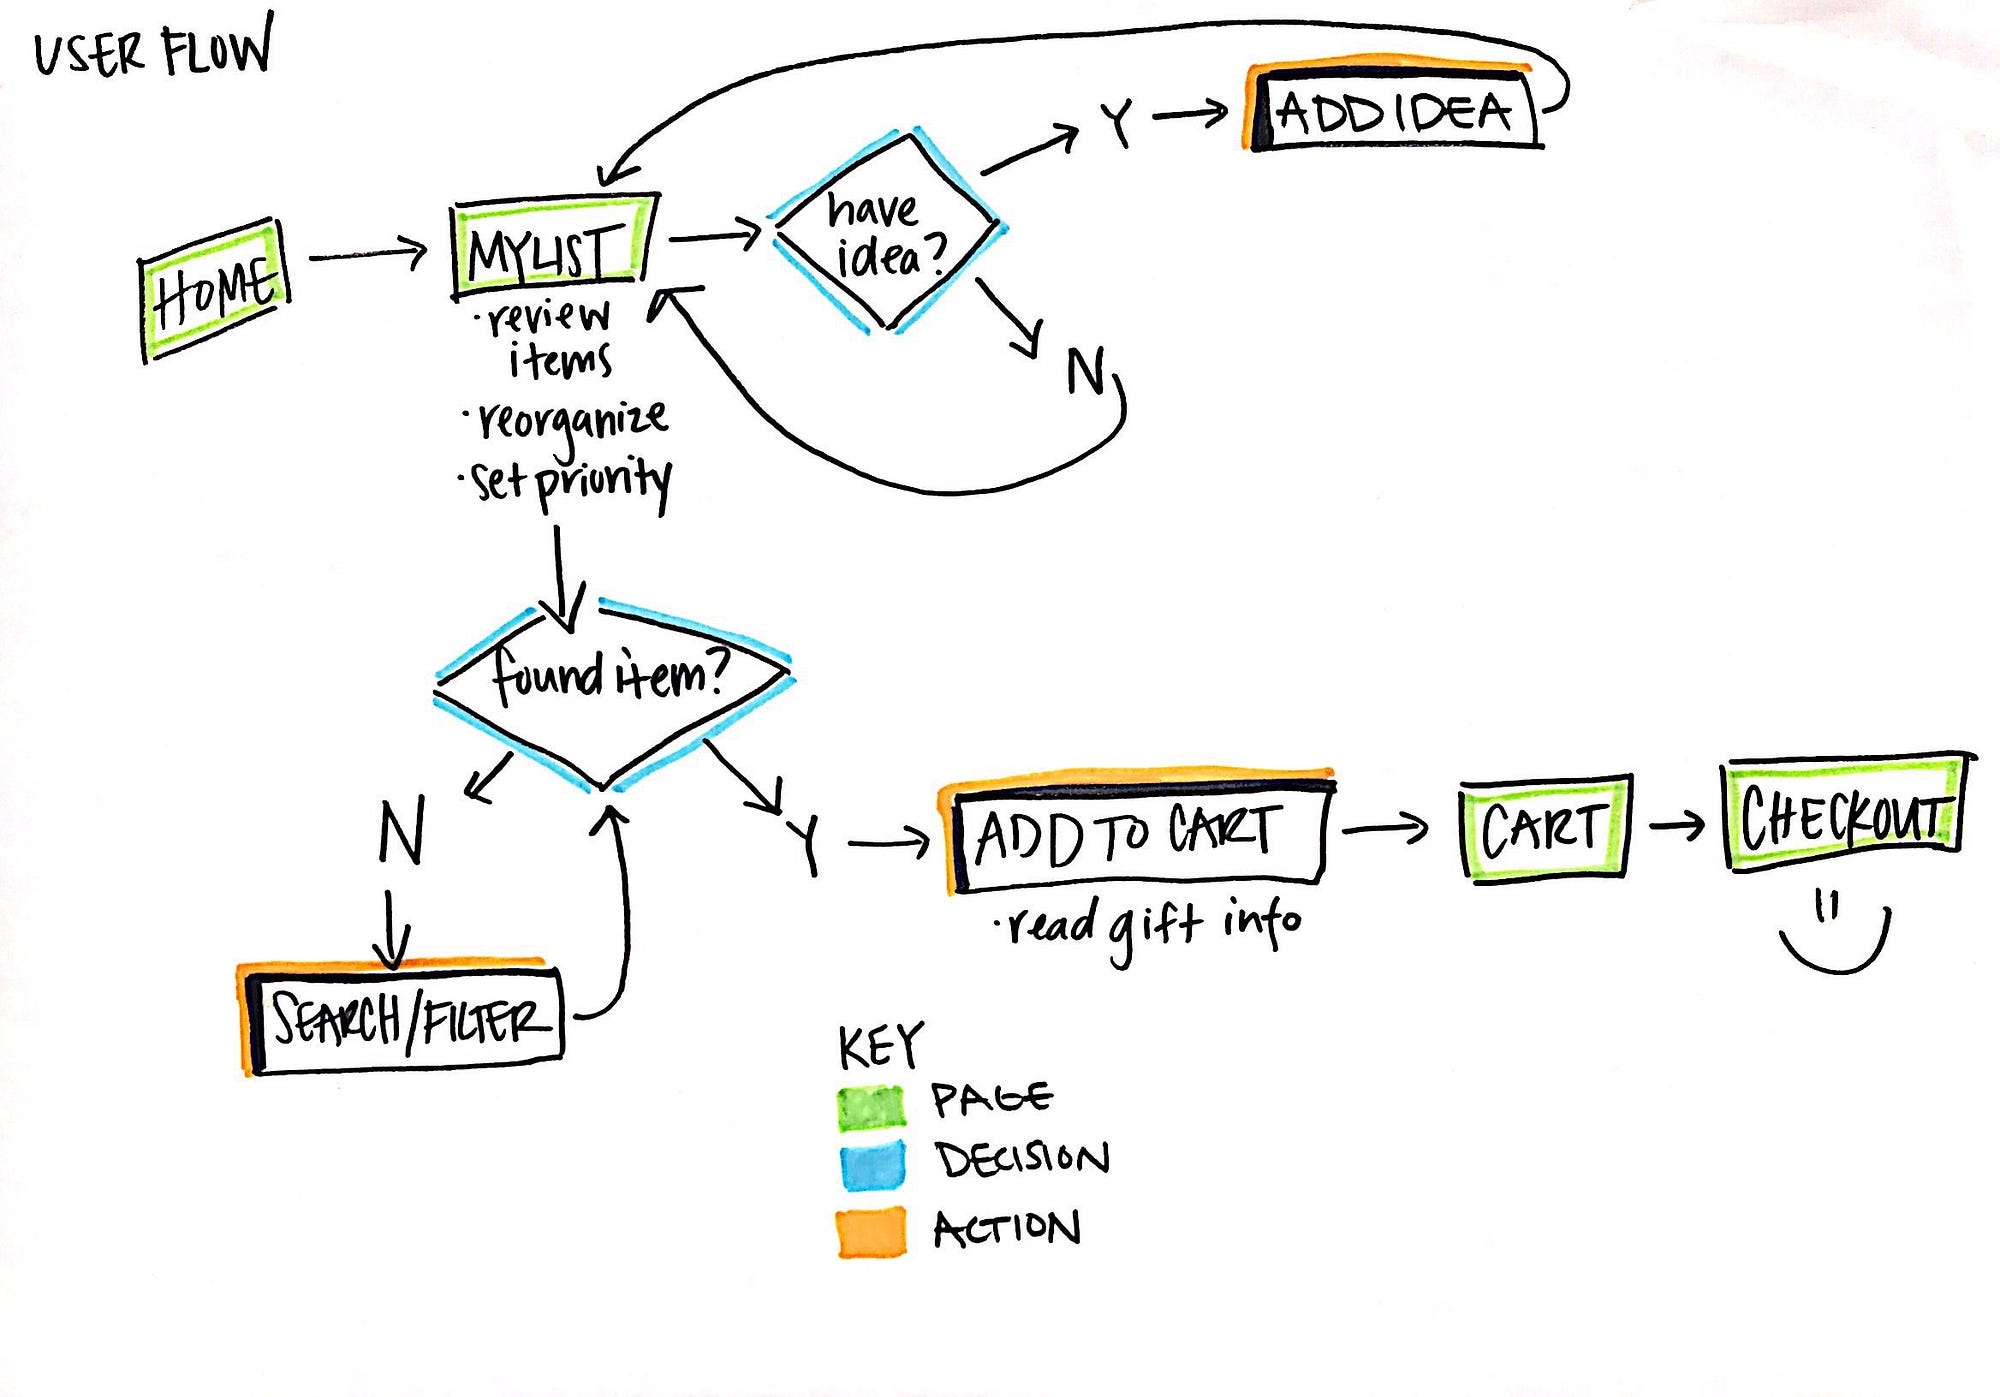 USER FLOW
HOME
MY LIST
· review
items
· reorganize
· set priority
have
idea?
Y
ADD IDEA
N
found item?
N
SEARCH/FILTER
Y
ADD TO CART
· read gift info
CART
CHECKOUT
KEY
PAGE
DECISION
ACTION